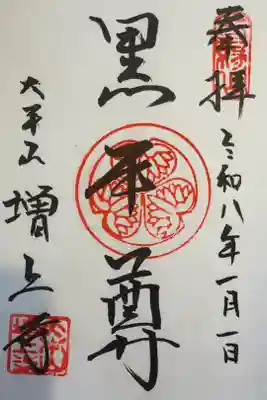 奉拝
令和八年一月一日
黒本尊
大本山
増上寺